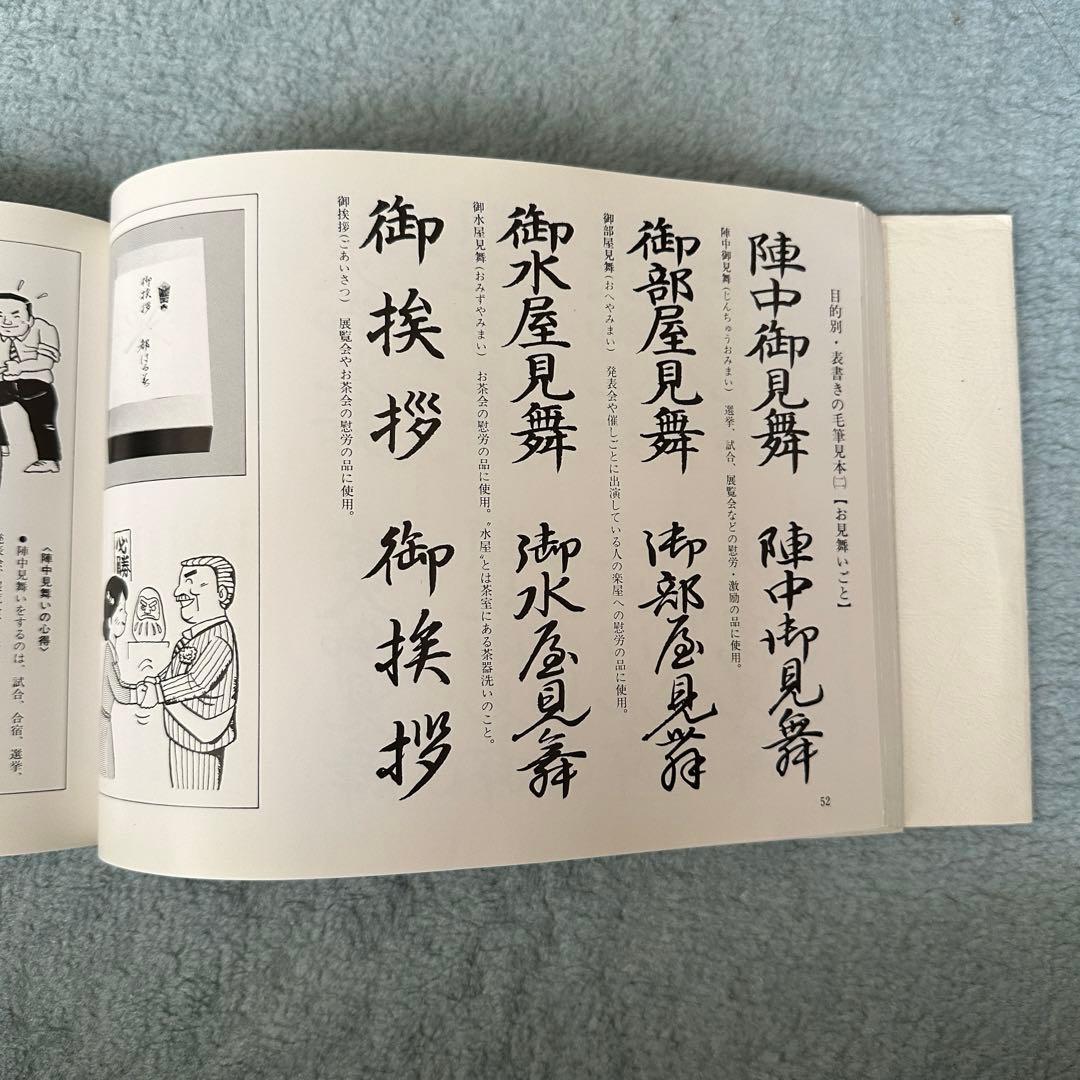 目的別・表書きの毛筆見本㈡【お見舞いごと】
陣中御見舞 陣中御見舞
陣中御見舞(じんちゅうおみまい) 選挙、試合、展覧会などの慰労・激励の品に使用。
御部屋見舞 御部屋見舞
御部屋見舞(おへやみまい) 発表会や催しごとに出演している人の楽屋への慰労の品に使用。
御水屋見舞 御水屋見舞
御水屋見舞(おみずやみまい) お茶会の慰労の品に使用。〝水屋〟とは茶室にある茶器洗いのこと。
御挨拶 御挨拶
御挨拶(ごあいさつ) 展覧会やお茶会の慰労の品に使用。
52
御挨拶
必勝
〈陣中見舞いの心得〉
●陣中見舞いをするのは、試合、合宿、選挙、